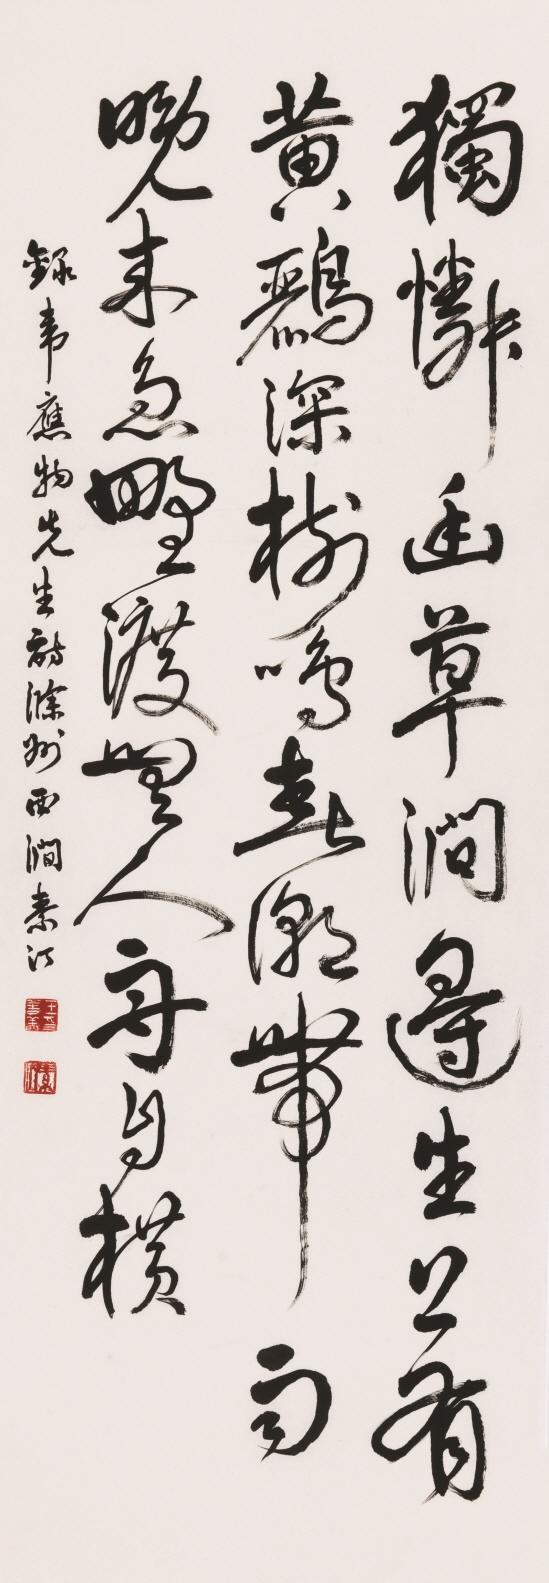 獨憐幽草澗邊生上有
黄鸝深樹鳴春潮帶雨
晚来急野渡無人舟自横
録韋應物先生詩滁州西澗素江